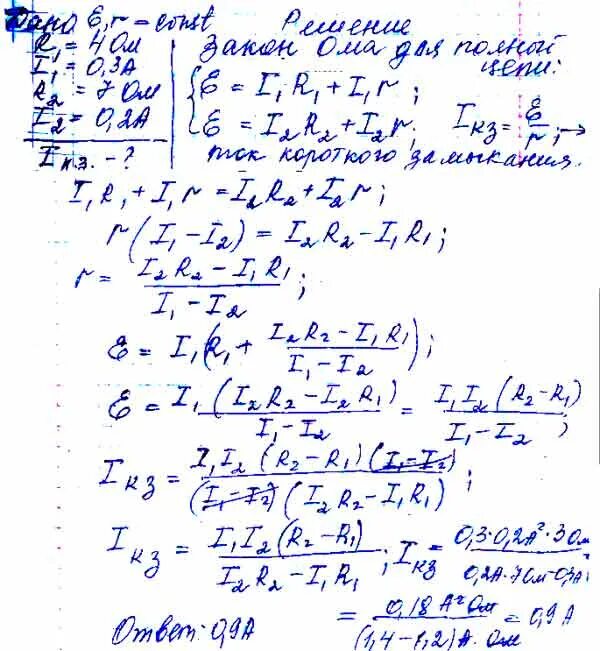 Дано ℰ, r = const
R₁ = 4 Ом
I₁ = 0,3 А
R₂ = 7 Ом
I₂ = 0,2 А
Iк.з. - ?
Решение
Закон Ома для полной
цепи:
ℰ = I₁R₁ + I₁r ;
ℰ = I₂R₂ + I₂r ; Iкз = ℰ/r ; →
ток короткого замыкания.
I₁R₁ + I₁r = I₂R₂ + I₂r ;
r(I₁ - I₂) = I₂R₂ - I₁R₁ ;
r = (I₂R₂ - I₁R₁)/(I₁ - I₂) ;
ℰ = I₁(R₁ + (I₂R₂ - I₁R₁)/(I₁ - I₂)) ;
ℰ = I₁(I₂R₂ - I₂R₁)/(I₁ - I₂) = I₁I₂(R₂ - R₁)/(I₁ - I₂) ;
Iкз = I₁I₂(R₂ - R₁)(I₁ - I₂)/((I₁ - I₂)(I₂R₂ - I₁R₁)) ;
Iкз = I₁I₂(R₂ - R₁)/(I₂R₂ - I₁R₁) ; Iкз = 0,3·0,2А²·3Ом/(0,2А·7Ом-0,3А
= 0,18 А²Ом/((1,4 - 1,2)А·Ом) = 0,9 А
Ответ: 0,9А